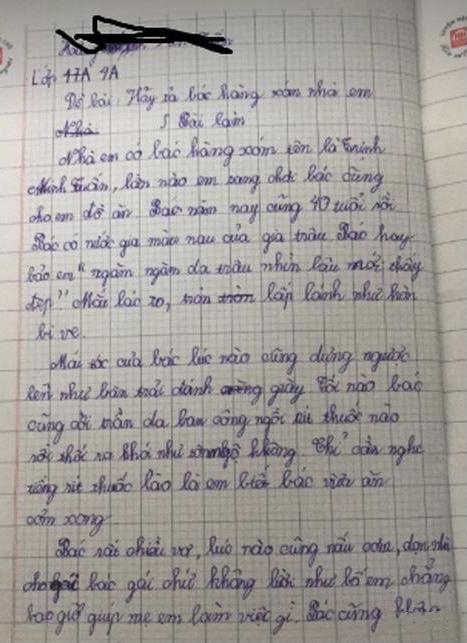 Lớp 17A 4A
Đề bài: Hãy tả bác hàng xóm nhà em
Nhà Bài làm
Nhà em có bác hàng xóm tên là Trịnh
Minh Tuấn, lần nào em sang chơi bác cũng
cho em đồ ăn. Bác năm nay cũng 40 tuổi rồi
Bác có nước gia màu nau của gia trâu Bác hay
bảo em "ngăm ngăm da trâu nhìn lâu mới thấy
đẹp" Mắt bác to, tròn lấp lánh như hòn
bi ve.
Mái tóc của bác lúc nào cũng dựng ngược
lên như bàn trải đánh giày Tối nào bác
cũng cởi trần ra ban công ngồi rít thuốc nào
rồi thổi ra khói như khổng. Chỉ cần nghe
tiếng rít thuốc lào là em biết bác vừa ăn
cơm xong.
Bác rất chiều vợ, lúc nào cũng nấu cơm, dọn nhà
cho bác gái chứ không lười như bố em chẳng
bao giờ giúp mẹ em làm việc gì. Bác cũng